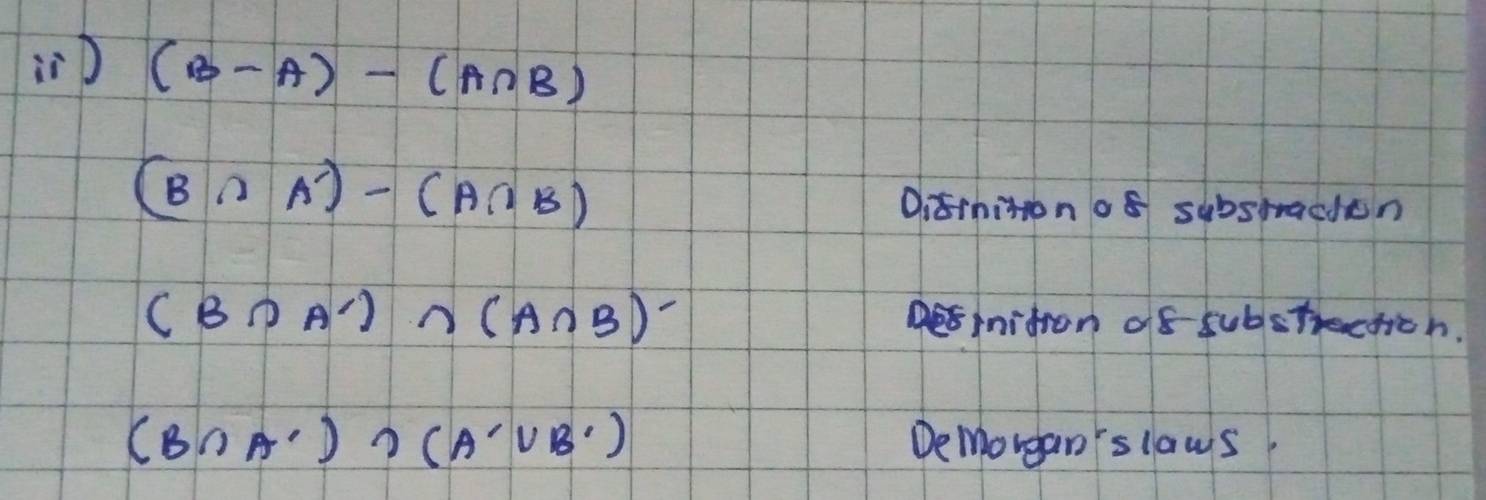 ii) (B - A) - (A∩B)
(B ∩ A') - (A∩B) Difinition of substraction
(B ∩ A') ∩ (A∩B)' Definition of substraction.
(B∩A') ∩ (A'∪B') DeMorgan's laws.